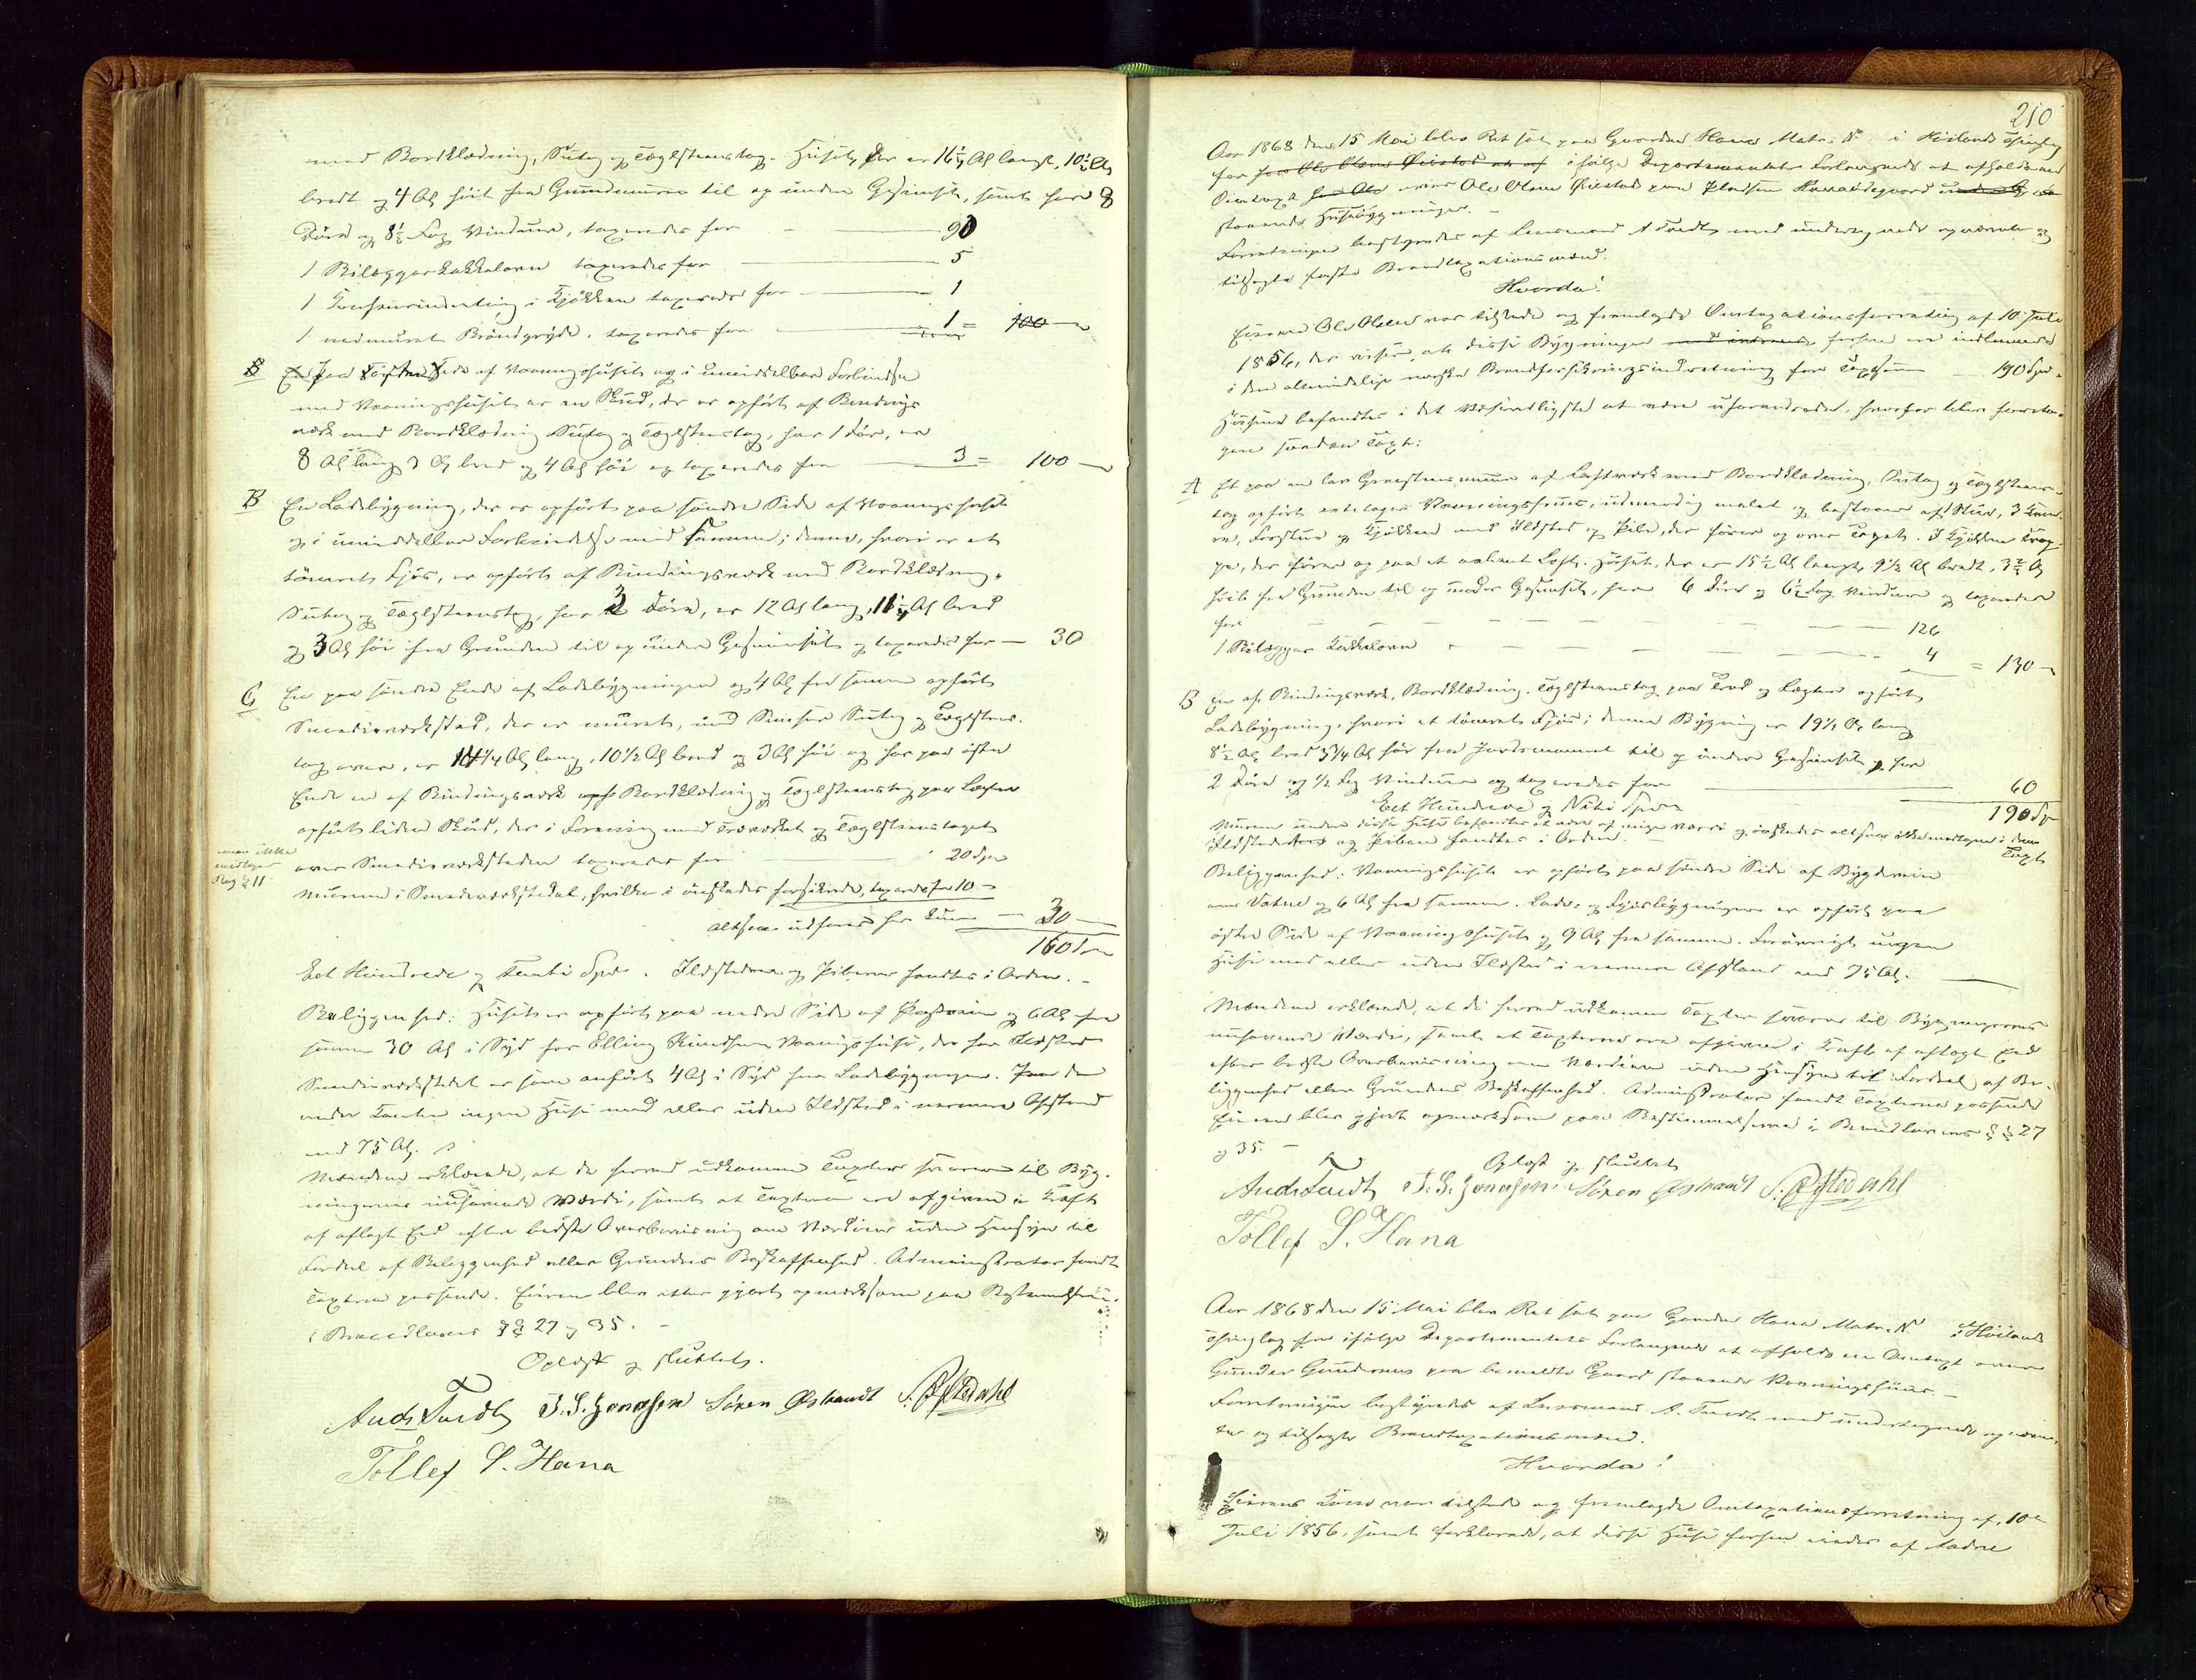 med Bordklædning, Sutag og Tæglsteenstag. Huset, der er 16¼ Al langt, 10½ Al
bredt og 4 Al høit fra Grundmuren til op under Gesimset, samt har 8
Døre og 8½ Fag Vinduer, taxeredes for 90
1 Bilæggerkakkelovn taxeredes for 5
1 i Kjøkken taxeredes for 1
1 nedmuret Bryndgryde, taxeredes for 1 = 100
B Paa Side af Vaaningshuset og i umiddelbar Forbindelse
med Vaaningshuset er en Skud, der er opført af Bindings
værk med Bordklædning Sutag og Tæglsteenstag, har 1 Dør, er
8 Al lang 3 Al bred og 4 Al høi og taxeredes for 3 = 100
B En Ladebygning, der er opført paa søndre Side af Vaaningshuset
og i umiddelbar Forbindelse med samme; denne, hvori er et
tømret Fjøs, er opført af Bindingsværk med Bordklædning,
Sutag og Tæglsteenstag, har 3 Døre, er 12 Al lang, 11¼ Al bred
og 3 Al høi fra Grunden til op under Gesimset og taxeredes for 30
C En paa søndre Ende af Ladebygningen og 4 Al fra samme opført
Smedieværksted, der er muret, med Sutag og Tæglsteens-
tag over, er 14¼ Al lang, 10½ Al bred og 3 Al høi og har paa østre
Ende en af Bindingsværk Bordklædning og Tæglsteenstag paa Lægter
opført liden Skud, der i Forening med Træværket og Tæglsteenstaget
over Smedieværkstedet taxeredes for 20 Spd
ikke
medtages
Pag 211
Murene i Smedieværkstedet, hvilke ønskedes forsikrede, taxeredes for 10
altsaa udføres her kun 30
160 Spd
Eet Hundrede og Spd. Ildstederne og Piberne fandtes i Orden.
Beliggenhed: Huset er opført paa nedre Side af Postveien og 6 Al fra
samme 30 Al i Syd for Elling Vaaningshus, der har Ildsted
Smedieværkstedet er som anført 4 Al i Syd fra Ladebygningen. Paa de
andre Kanter ingen Huse med eller uden Ildsted i nærmere Afstand
end 75 Al.
Mændene erklærede, at de herved udkomne Taxter svarer til Byg-
ningernes nuhavende Værdi, samt at Taxterne ere afgivne i Kraft
af aflagt Eed efter bedste Overbeviisning om Værdien uden Hensyn til
Fordeel af Beliggenhed eller Grundens Beskaffenhed. Administrator fandt
Taxterne passende. Eieren blev efter gjort opmærksom paa Bestemmelserne
i Brandlovens §§ 27 og 35.
Oplæst og sluttet.
Ands Tuedt J. S. Jonassen Sören Østraadt S. Østedahl
Tollef S. Hana
210
Aar 1868 den 15 Mai blev Ret sat paa Gaarden Hana Matr. No i Höilands Thinglag
for ifølge Departementets Forlangende at afholde en
Omtaxt over Ole Olsen paa Pladsen
staaende Huusbygninger.
Forretningen bestyredes af Lensmand A Tuedt med undertegnede opnævnte og
tilsagte faste Brandtaxationsmænd.
Hvorda!
Eieren Ole Olsen var tilstede og fremlagde Omtaxationsforretning af 10 Juli
1856, der viser, at disse Bygninger forhen ere indlemmede
i den almindelige norske Brandforsikringsindretning for Taxtsum 190 Spd.
Husene befandtes i det Væsentligste at være uforandrede, hvorfor blev foreta-
gen saadan Taxt:
A Et paa en lav Graasteensmuur af Laftværk med Bordklædning, Sutag og Tæglsteens-
tag opført Vaaningshuus, udvendig malet og bestaaer af Stue, 3 Kam-
re, Forstue og Kjøkken med Ildsted og Pibe, der fører op over Taget. I Kjøkken Trap-
pe, der fører op paa et aabent Loft. Huset, der er 15½ Al langt, 9½ Al bredt, 3¾ Al
høit fra Grunden til op under Gesimset, har 6 Døre og 6½ Fag Vinduer og taxeredes
for 126
1 Bilægger Kakkelovn 4 = 130
B En af Bindingsværk, Bordklædning, Tæglsteenstag paa Træ og Lægter opført
Ladebygning, hvori et tømret Fjøs; denne Bygning er 19½ Al lang
8½ Al bred 3¼ Al høi fra Jordsmonnet til op under Gesimset, har
2 Døre og ½ Fag Vinduer og taxeredes for 60
Eet Hundrede og Niti Spd 190 Spd
Murene under disse Huse befandtes at være af ringe Værdi og ønskedes altsaa ikke medtagne i denne
Taxt
Ildstederne og Piben fandtes i Orden.
Beliggenhed: Vaaningshuset er opført paa søndre Side af Bygdeveien
6 Al fra samme. Lade- og Fjøsbygningen er opført paa
østre Side af Vaaningshuset og 9 Al fra samme. Forøvrigt ingen
Huse med eller uden Ildsted i nærmere Afstand end 75 Al.
Mændene erklærede, at de herved udkomne Taxter svarer til Bygningernes
nuhavende Værdi, samt at Taxterne ere afgivne i Kraft af aflagt Eed
efter bedste Overbeviisning om Værdien uden Hensyn til Fordeel af Be-
liggenhed eller Grundens Beskaffenhed. Administrator fandt Taxterne passende
Eieren blev gjort opmærksom paa Bestemmelserne i Brandlovens §§ 27
og 35.
Oplæst og sluttet
Ands Tuedt J. S. Jonassen Sören Østraadt S. Østedahl
Tollef S. Hana
Aar 1868 den 15 Mai blev Ret sat paa Gaarden Hana Matr. No i Höilands
Thinglag for ifølge Departementets Forlangende at afholde en Omtaxt over
Gunder Gundersens paa bemeldte Gaard staaende Vaaningshuus.
Forretningen bestyredes af Lensmand A. Tuedt med undertegnede opnævn-
te og tilsagte Brandtaxationsmænd.
Hvorda!
Eierens Kone var tilstede og fremlagde Omtaxationsforretning af 10de
Juli 1856, samt forklarede, at disse Huse forhen eiedes af